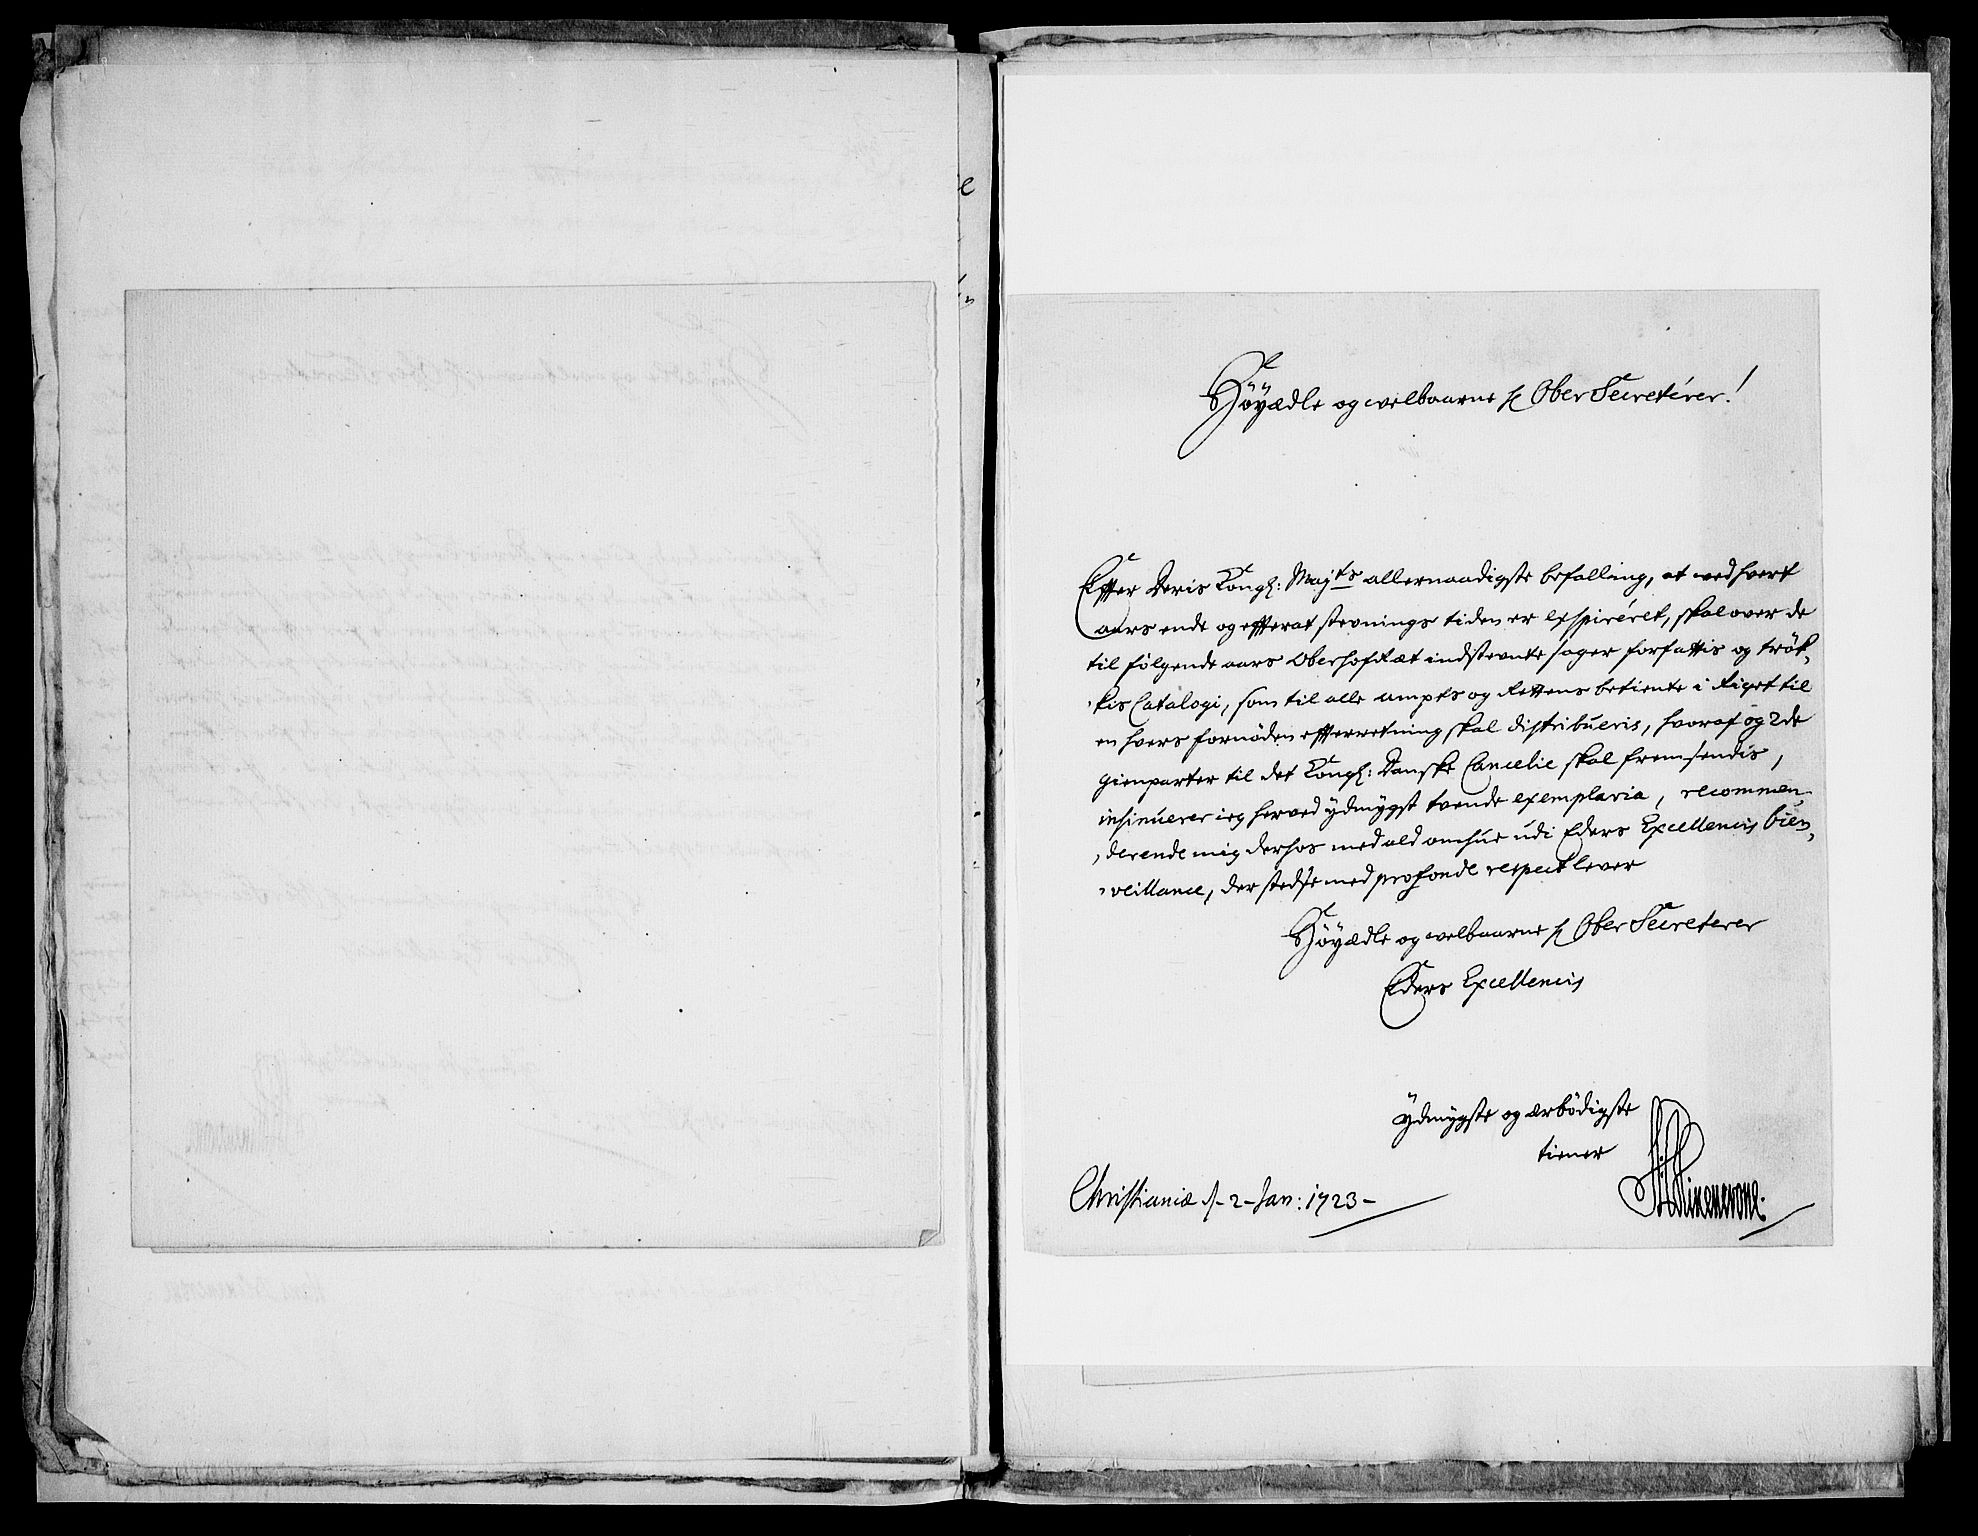 Höyædle og welbaarne H Ober Secretérer!
Effter Deris Kongl: Maj:ts allernaadigste befalling, at wed hvert
aars ende og effterat stevnings tiden er exspiréret, skal over de
til følgende aars OberhofRæt indstevnte sager forfattis og trök-
-kis Catalogi, som til alle ampts og Rettens betiente i Riget til
en hvers fornöden effterretning skal distribueris, hvoraf og 2de
gienparter til det Kongl: Danske Cancelie skal fremsendis,
insinuerer ieg herved ydmygst tvende exemplaria, recommen-
-derende mig derhos med ald omhue udi Eders Excellencis bien-
-veillance, der stedse med profonde respect lever
Höyædle og welbaarne H Ober Secreterer
Eders Excellencis
ydmygste og ærbödigste
tiener
Christianiæ d - 2 - Jan: 1723 -